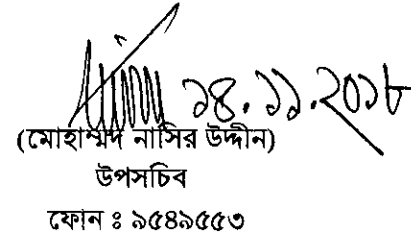 ১৪.১১.২০১৮
(মোহাম্মদ নাসির উদ্দীন)
উপসচিব
ফোন ঃ ৯৫৪৯৫৫৩